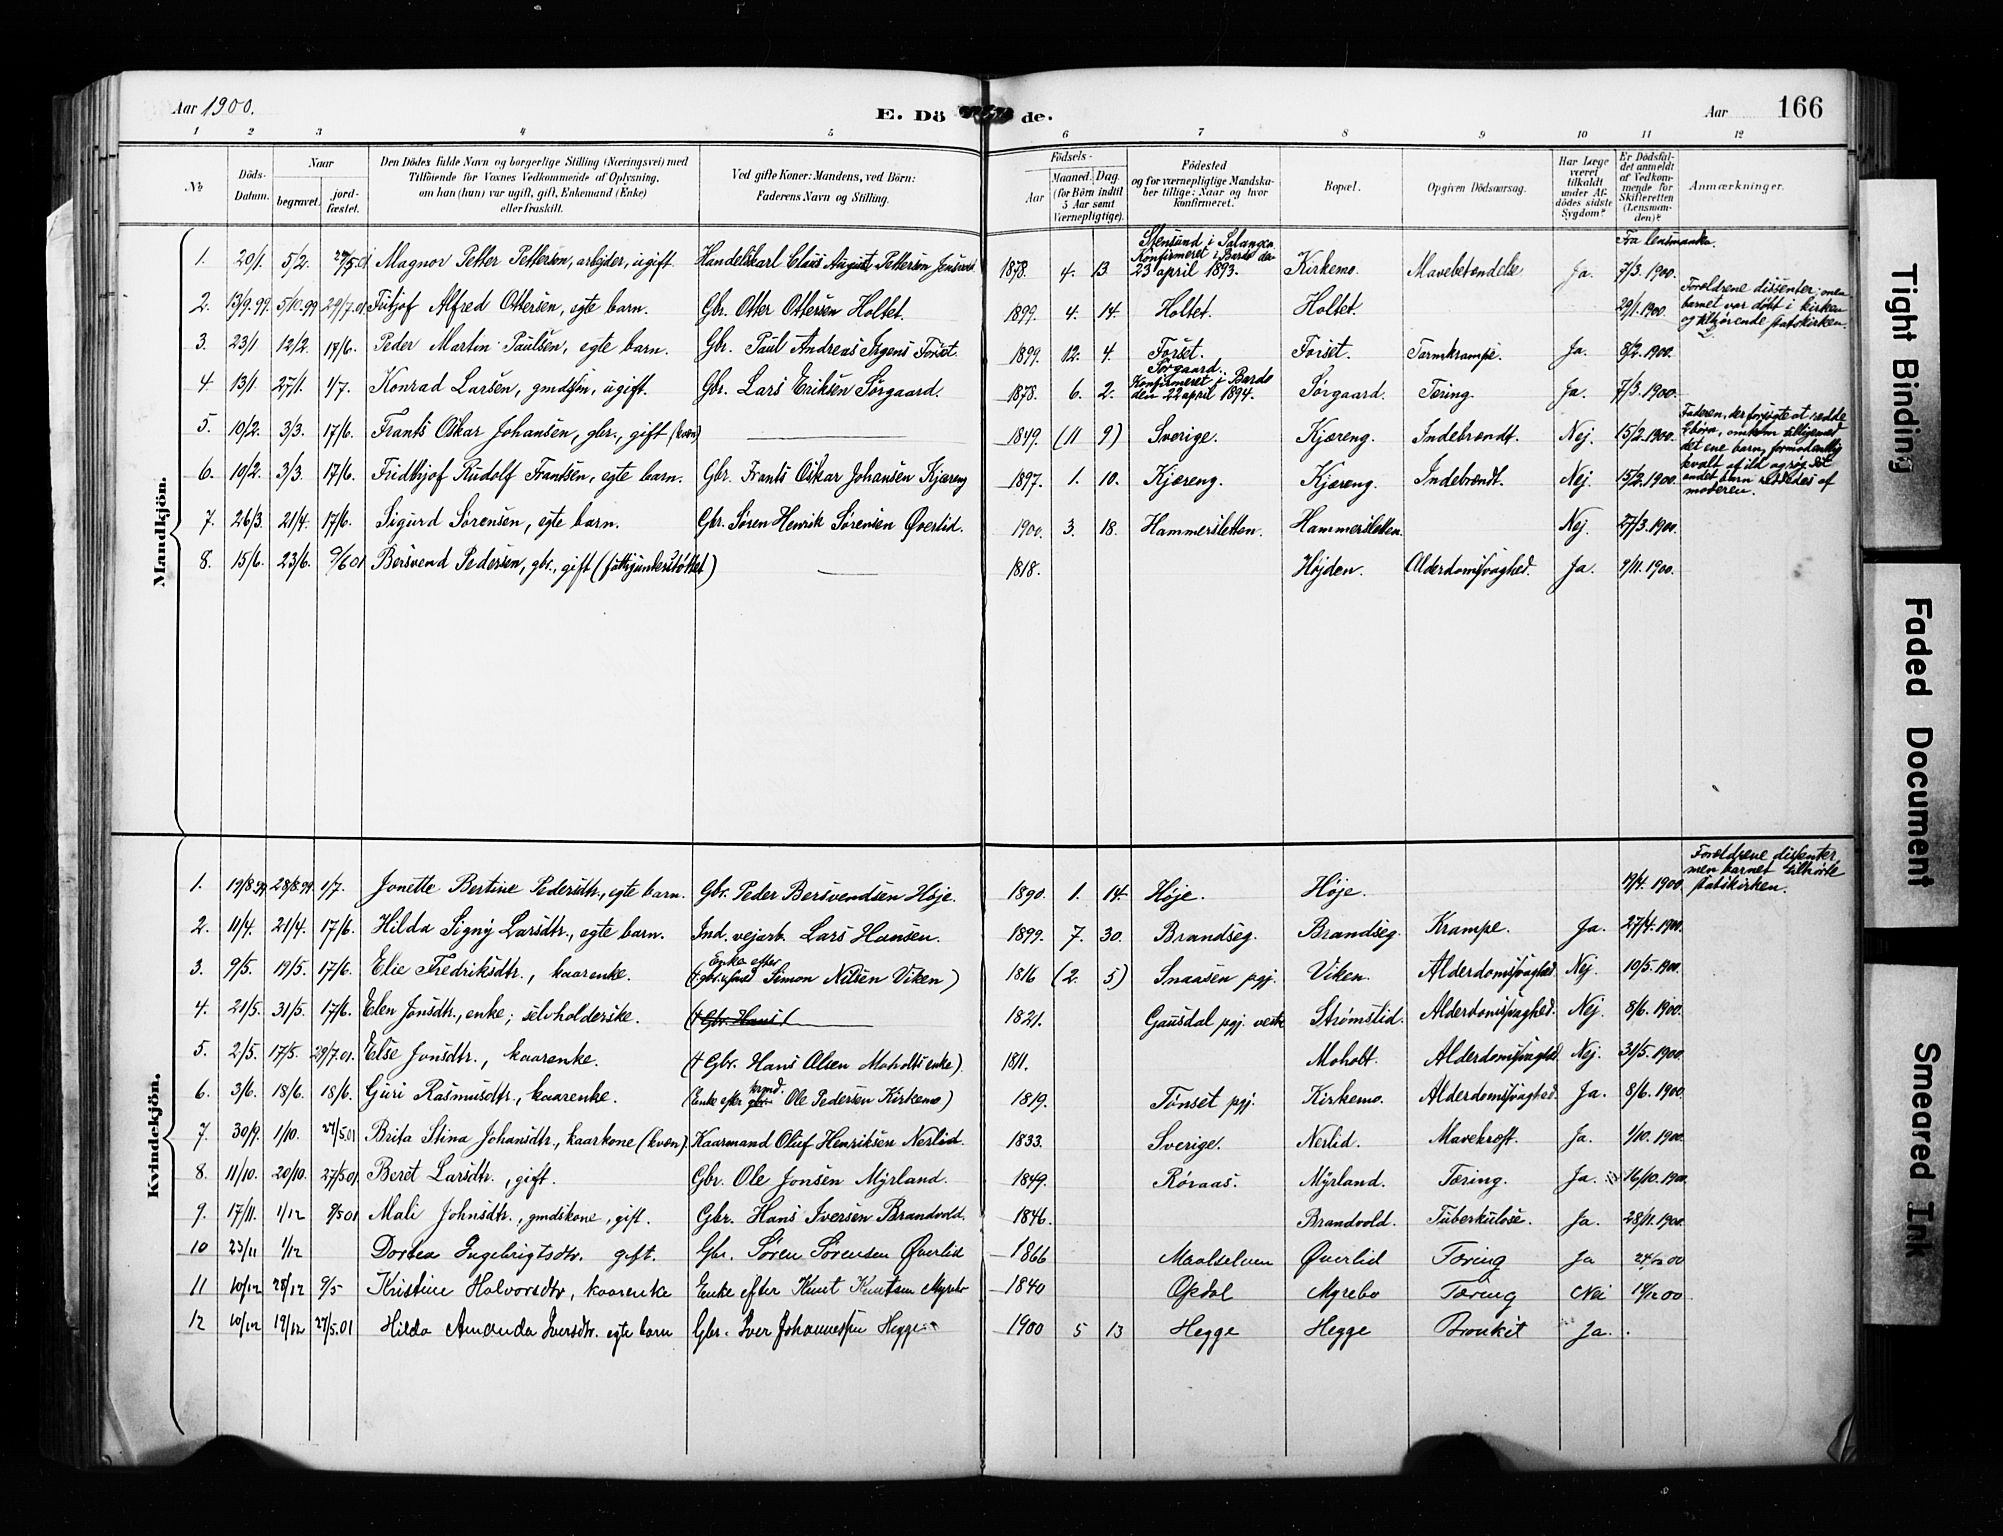 Aar 1900.
E. Dö de.
Aar 166
1 2 3 4 5 6 7 8 9 10 11 12
No
Döds-Datum.
Naar
begravet. jord-fæstet.
Den Dödes fulde Navn og borgerlige Stilling (Næringsvei) med
Tilföiende for Voxnes Vedkommende af Oplysning,
om han (hun) var ugift, gift, Enkemand (Enke)
eller fraskilt.
Ved gifte Koner: Mandens, ved Börn:
Faderens Navn og Stilling.
Födsels-
Aar
Maaned. Dag.
(for Börn indtil
5 Aar samt
Værnepligtige).
Födested
og for værnepligtige Mandska-
ber tillige: Naar og hvor
konfirmeret.
Bopæl.
Opgiven Dödsaarsag.
Har Læge
været
tilkaldt
under Af-
dødes sidste
Sygdom?
Er Dödsfal-
det anmeldt
af Vedkom-
mende for
Skifteretten
(Lensman-
den)?
Anmærkninger.
Mandkjön.
1. 29/1. 5/2. 27/5.01 Magnor Petter Pettersen, arbejder, ugift Handelskarl Claus August Pettersen 1878. 4. 13 Stensund i Salangen Konfirmeret i Bardo den 23 april 1893. Kirkemo. Mavebetændelse Ja. 7/3. 1900. Fra lensmanden.
2. 13/9.99. 5/10.99 29/7.01 Fritjof Alfred Ottersen, egte barn. Gbr. Otter Ottersen Holtet. 1899. 4. 14. Holtet. Holtet. 29/1. 1900. Forældrene dissenter, men barnet var døbt i kirken og tilhørende statskirken.
3. 23/1 12/2. 17/6. Peder Martin Paulsen, egte barn. Gbr. Paul Andreas Irgens Forset. 1899. 12. 4. Forset. Forset. Tarmkrampe. Ja. 8/2. 1900.
4. 13/1. 27/1. 1/7. Konrad Larsen, gmdsøn, ugift. Gbr. Lars Eriksen Sørgaard. 1878. 6. 2. Sørgaard. Konfirmeret i Bardo den 22 april 1894. Sørgaard. Tæring. Ja. 7/3. 1900.
5. 10/2. 3/3. 17/6. Frants Oskar Johansen, gbr., gift (kvæn) 1849. (11 9) Sverige. Kjæreng. Indebrændt. Nej. 15/2. 1900. Faderen, der forsøgte at redde 2 børn, omkom tilligemed det ene barn, formodentlig kvalt af ild og røg. Det andet barn reddedes af moderen.
6. 10/2. 3/3. 17/6. Fridthjof Rudolf Frantsen, egte barn. Gbr. Frants Oskar Johansen Kjæreng 1897. 1. 10. Kjæreng. Kjæreng. Indebrændt. Nej. 15/2. 1900.
7. 26/3. 21/4. 17/6. Sigurd Sørensen, egte barn. Gbr. Søren Henrik Sørensen Øverlid. 1900. 3. 18. Hammersletten. Hammersletten. Nej. 27/3. 1900.
8. 15/6. 23/6. 9/6 01 Bersvend Pedersen, gbr., gift (fattigunderstøttet) 1818. Højden. Alderdomssvaghed. Ja. 9/11. 1900.
Kvindekjön.
1. 19/8.99 28/8.99. 1/7. Jonette Bertine Pedersdtr., egte barn. Gbr. Peder Bersvendsen Høje. 1890. 1. 14. Høje. Høje. 19/4. 1900 Forældrene dissenter men barnet tilhørte statskirken.
2. 11/4. 21/4. 17/6. Hilda Signy Larsdtr., egte barn. Ind. vejarb. Lars Hansen. 1899. 7. 30. Brandseg. Brandseg. Krampe. Ja. 27/4. 1900.
3. 9/5. 19/5. 17/6. Elie Fredriksdtr., kaarenke. (Enke efter Simon Nilsen Viken) 1816 (2. 5) Snaasen pgj. Viken. Alderdomssvaghed. Nej. 10/5. 1900.
4. 21/5. 31/5. 17/6. Elen Jonsdtr., enke; selvholderske. († Gbr. Hans) 1821. Gausdal pgj. vestre Strømslid. Alderdomssvaghed. Nej. 8/6. 1900.
5. 2/5. 17/5. 29/7.01. Else Jonsdtr., kaarenke. († Gbr. Hans Olsen Moholts enke). 1811. Moholt. Alderdomssvaghed Nej. 31/5. 1900.
6. 3/6. 18/6. 18/6. Guri Rasmusdtr., kaarenke. (Enke efter Ole Pedersen Kirkemo) 1819. Tønset pgj. Kirkemo. Alderdomssvaghed. Ja. 8/6. 1900.
7. 30/9. 1/10. 27/5.01 Brita Stina Johansdtr., kaarkone (kvæn). Kaarmand Oluf Henriksen Nerlid. 1833. Sverige. Nerlid. Mavekræft. Ja. 1/10. 1900.
8. 11/10. 20/10. 27/5 01 Beret Larsdtr., gift. Gbr. Ole Jonsen Myrland. 1849. Røraas. Myrland. Tæring. Ja. 16/10. 1900.
9. 17/11. 1/12 9/5 01 Mali Johnsdtr., gmdskone, gift. Gbr. Hans Iversen Brandvold. 1846. Brandvold. Tuberkulose. Ja. 28/11. 1900.
10 23/11 1/12 Dortea Ingebrigtsdtr. gift. Gbr. Søren Sørensen Øverlid 1866 Maalselven Øverlid Tæring Ja 24/12 00
11 10/12 28/12 9/5 Kristine Halvorsdtr, kaarenke Enke efter Knut Knutsen Myrebo 1840 Opdal Myrebo Tæring Nei 14/12 00
12 10/12 19/12 27/5.01 Hilda Amanda Iversdtr. egte barn Gbr. Iver Johannessen Hegge 1900 5 13 Hegge Hegge Bronkit Ja.
Tight Binding
Faded Document
Smeared Ink